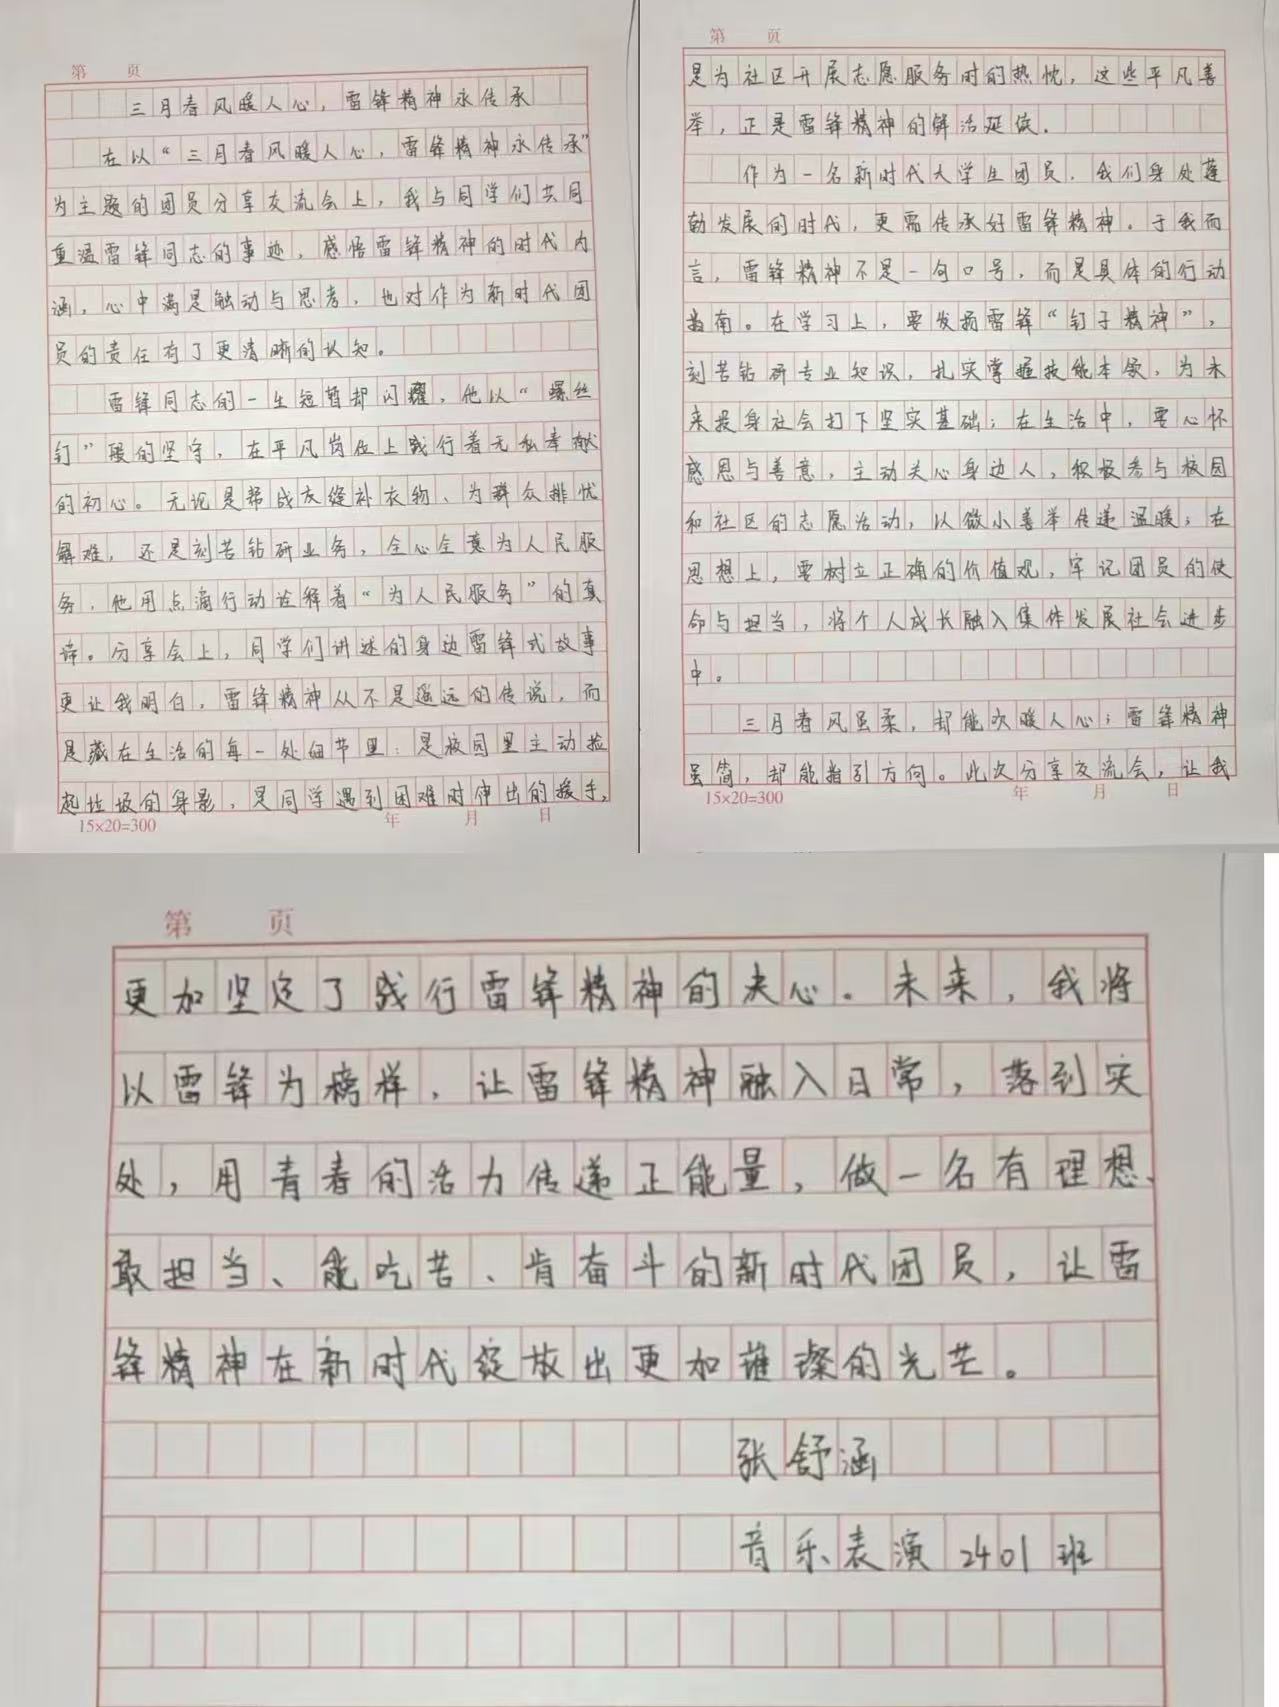 第 页
三月春风暖人心，雷锋精神永传承
在以“三月春风暖人心，雷锋精神永传承”
为主题的团员分享交流会上，我与同学们共同
重温雷锋同志的事迹，感悟雷锋精神的时代内
涵，心中满是触动与思考，也对作为新时代团
员的责任有了更清晰的认知。
雷锋同志的一生短暂却闪耀，他以“螺丝
钉”般的坚守，在平凡岗位上践行着无私奉献
的初心。无论是帮战友缝补衣物、为群众排忧
解难，还是刻苦钻研业务，全心全意为人民服
务，他用点滴行动诠释着“为人民服务”的真
谛。分享会上，同学们讲述的身边雷锋式故事
更让我明白，雷锋精神从不是遥远的传说，而
是藏在生活的每一处细节里：是校园里主动捡
起垃圾的身影，是同学遇到困难时伸出的援手，
15×20=300 年 月 日
第 页
是为社区开展志愿服务时的热忱，这些平凡善
举，正是雷锋精神的鲜活延续．
作为一名新时代大学生团员，我们身处蓬
勃发展的时代，更需传承好雷锋精神。于我而
言，雷锋精神不是一句口号，而是具体的行动
指南。在学习上，要发扬雷锋“钉子精神”，
刻苦钻研专业知识，扎实掌握技能本领，为未
来投身社会打下坚实基础；在生活中，要心怀
感恩与善意，主动关心身边人，积极参与校园
和社区的志愿活动，以微小善举传递温暖；在
思想上，要树立正确的价值观，牢记团员的使
命与担当，将个人成长融入集体发展社会进步
中。
三月春风虽柔，却能吹暖人心；雷锋精神
虽简，却能指引方向。此次分享交流会，让我
15×20=300 年 月 日
第 页
更加坚定了践行雷锋精神的决心。未来，我将
以雷锋为榜样，让雷锋精神融入日常，落到实
处，用青春的活力传递正能量，做一名有理想、
敢担当、能吃苦、肯奋斗的新时代团员，让雷
锋精神在新时代绽放出更加璀璨的光芒。
张舒涵
音乐表演2401班